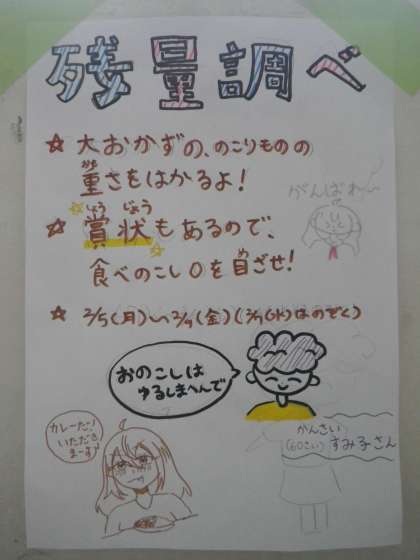 残量調べ
☆ 大おかずの、のこりものの
重さをはかるよ!
おも
☆ 賞状もあるので、
しょう じょう
食べのこし0を目ざせ!
め
☆ 2/5(月)〜2/9(金)(2/7(水)はのぞく)
がんばれ〜
おのこしは
ゆるしまへんで
カレーだ!
いただき
まーす♪
かんさい
(60さい)すみ子さん